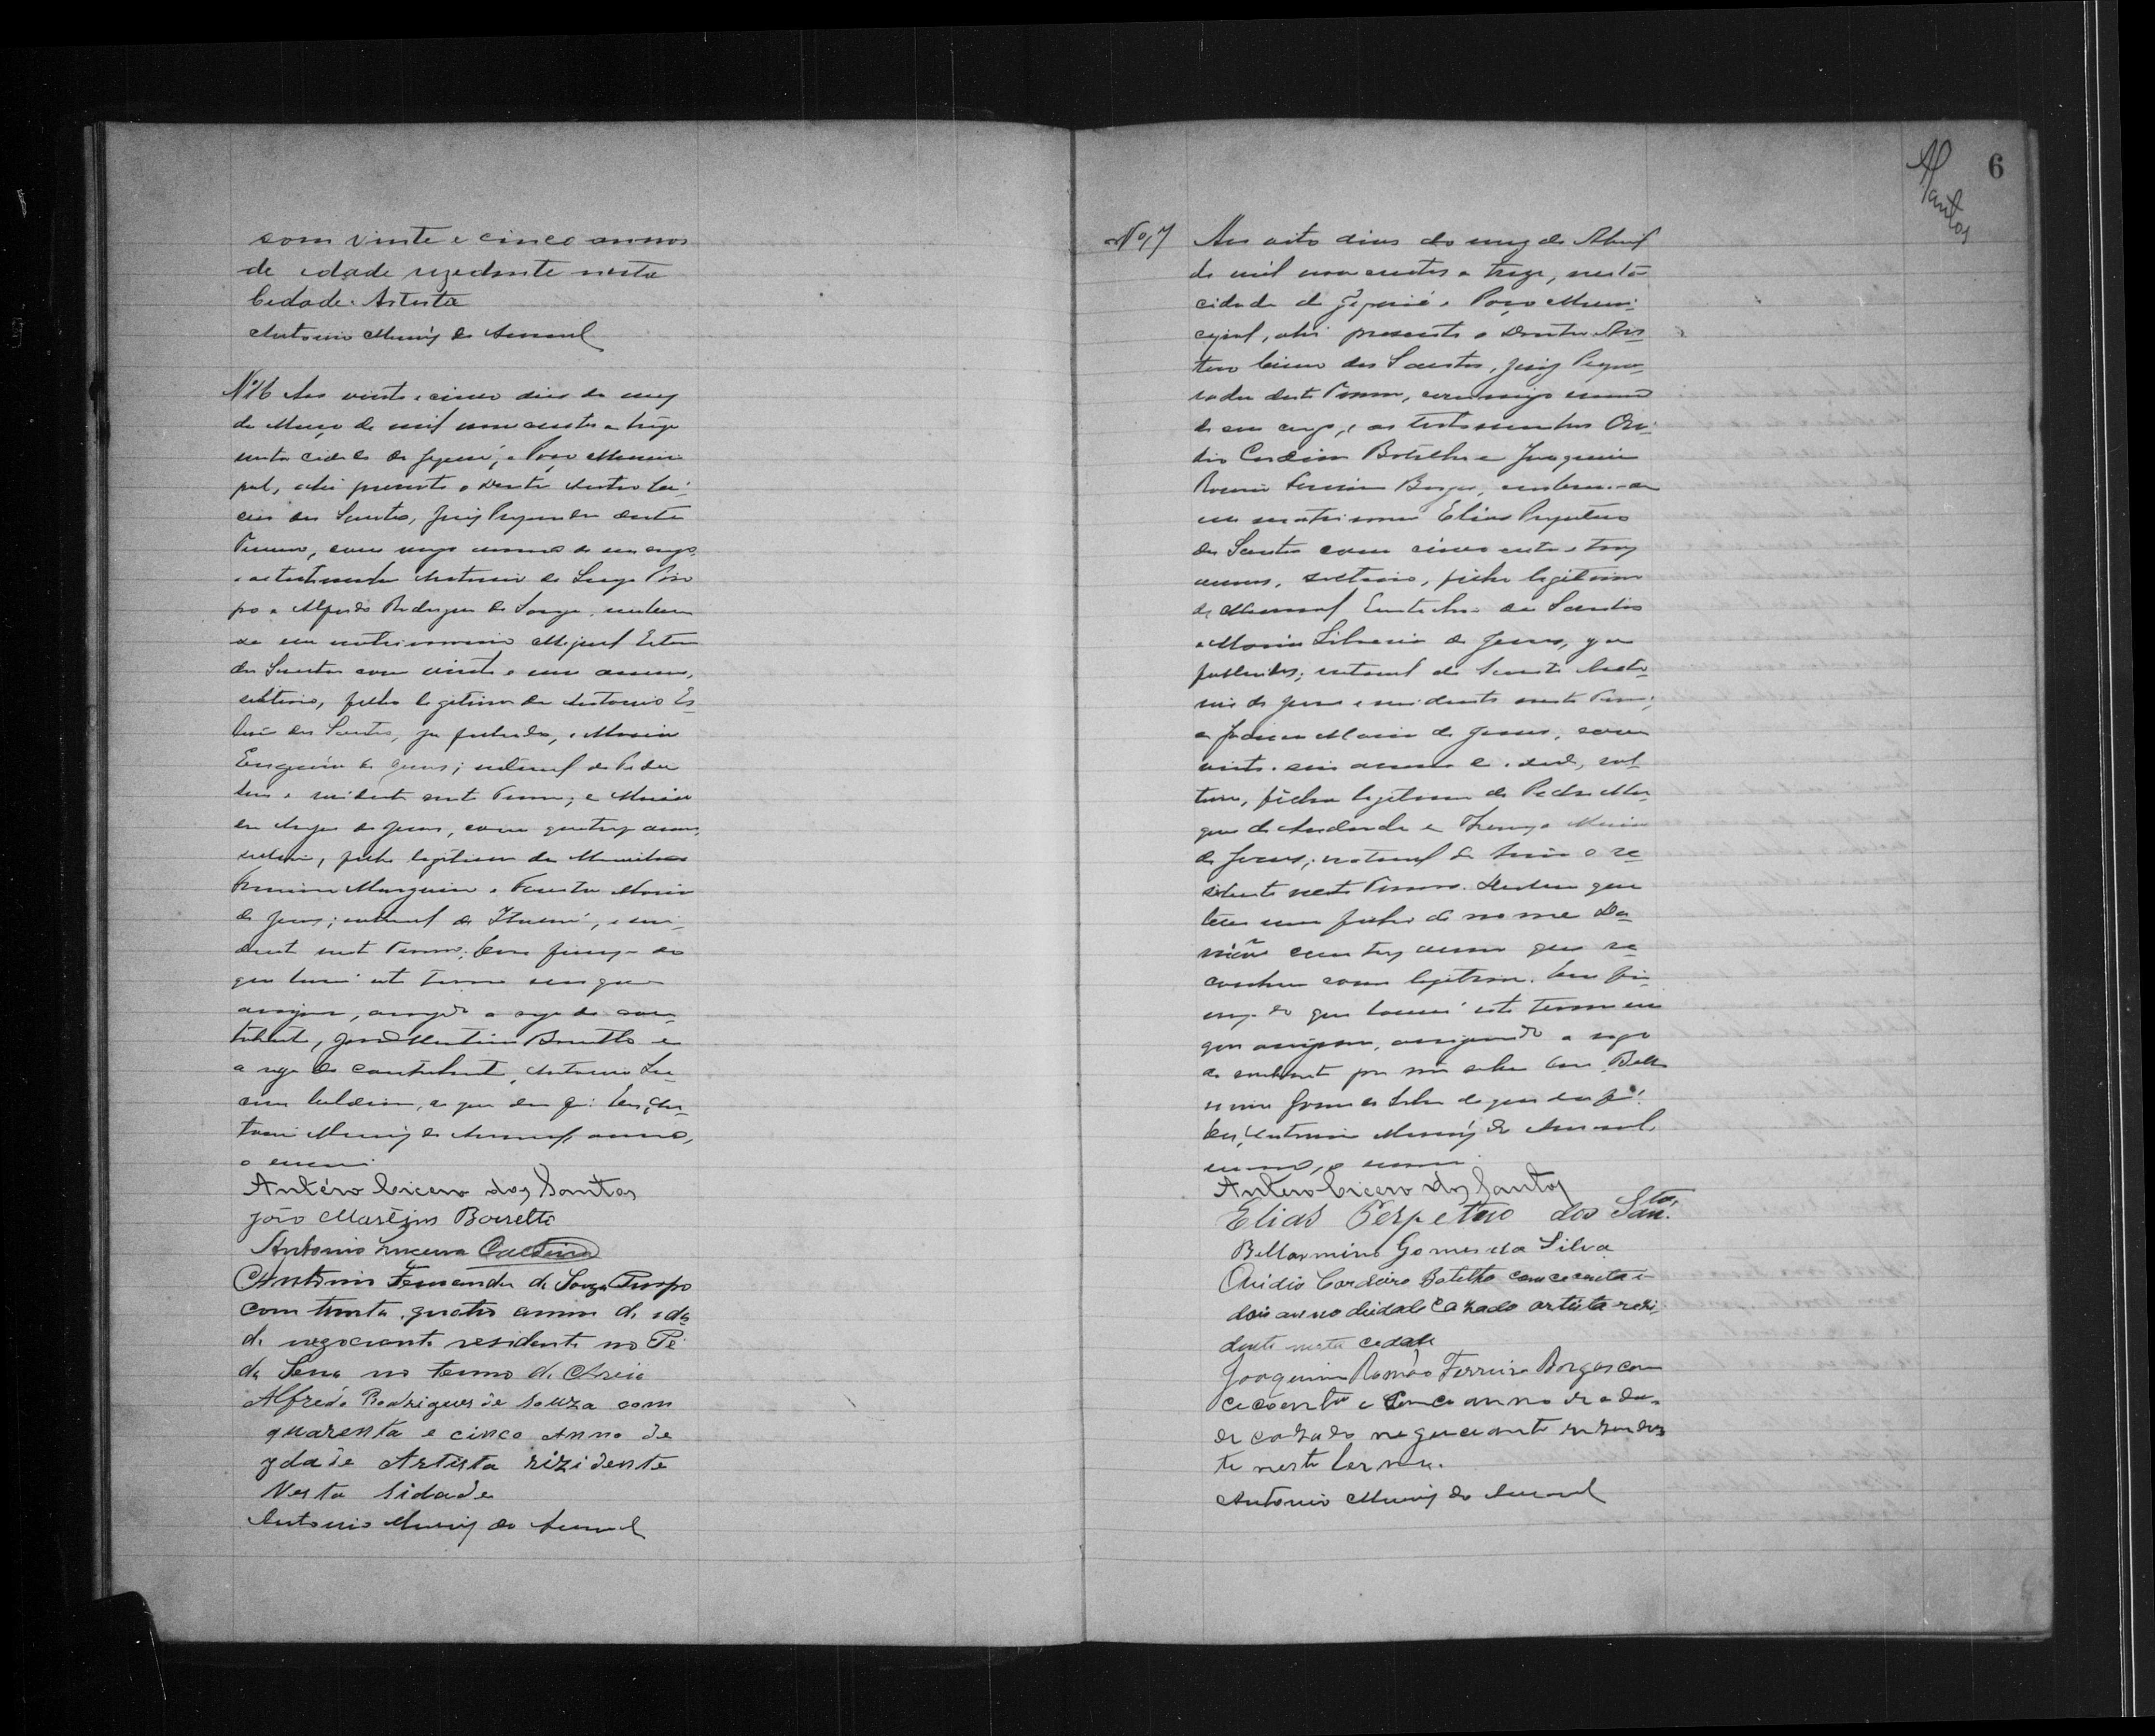 com vinte e cinco annos
de edade rezedente nesta
Cedade. Artista
Antonio Muniz do Amaral
Nº 16 Aos vinte e cinco dias do mez
de Março de mil nove centos e treze
nesta cidade de Jequié, e Paço Munici
pal, ahi presente o Doutor Antero Ci
cero dos Santos, Juiz Preparador deste
Termo, com migo escrivão de seu cargo,
e as testemunhas Antonio de Souza
e Alfredo Rodrigues de Souza, recebem
se em matrimonio Miguel
dos Santos com vinte e um annos,
solteiro, filho legitimo de Antonio
dos Santos, ja fallecido, e Maria
de Jesus; natural de
e residente neste Termo; e Maria
dos Anjos de Jesus, com quatorze annos,
solteira, filha legitima de
e Maria
de Jesus; natural de e resi
dente neste Termo. Em firmeza do
que lavrei este termo em que
assignam, assignando a rogo do con
trahente, João Martins Barretto e
a rogo da contrahente, Antonio Lu
cena Caldeira, do que dou fé. Eu, An
tonio Muniz do Amaral, escrivão,
o escrevi
Antéro Cicero dos Santos
João Martins Barretto
Antonio Lucena Caldeira
Antonio Fernandes de Souza
com trinta quatro annos de eda
de negociante residente no Pé
da Serra no termo de Areia
Alfredo Rodrigues de Souza com
quarenta e cinco anno de
ydade Artista rizidente
Nesta Sidade
Antonio Muniz do Amaral
6
Santos
Nº 17 Aos oito dias do mez de Abril
de mil nove centos e treze, nesta
cidade de Jequié e Paço Muni
cipal, ahi presente o Doutor An
tero Cicero dos Santos, Juiz Prepa
rador deste Termo, commigo escrivão
de seu cargo, e as testemunhas Ovi
dio Cordeiro Botelho e Joaquim
Romão Ferreira Borges, recebem-se
em matrimonio Elias Perpetuo
dos Santos com cincoenta e tres
annos, solteiro, filho legitimo
de Manoel dos Santos
e Maria de Jesus, ja
fallecidos; natural de Santo Anto
nio de Jesus e residente neste Termo;
e Maria de Jesus, com
vinte e seis annos de edade, sol
teira, filha legitima de Pedro
de Andrade e Maria
de Jesus; natural de e re
sidente neste Termo. Declaram que
teem um filho de nome Da
mião com tres annos que re
conhecem como legitimo. Em fir
meza do que lavrei este termo em
que assignam, assignando a rogo
da contrahente por não saber ler, Bellar
mino Gomes da Silva do que dou fé.
Eu, Antonio Muniz do Amaral,
escrivão, o escrevi
Antero Cicero dos Santos
Elias Perpetuo dos Santos
Bellarmino Gomes da Silva
Ovidio Cordeiro Botelho com cecoenta e
dois anno deidade Cazado artista rezi
dente nesta cedade
Joaquim Romão Ferreira Borges com
cecoenta e cinco anno de eda
de cazado negociante rezeden
te neste termo.
Antonio Muniz do Amaral